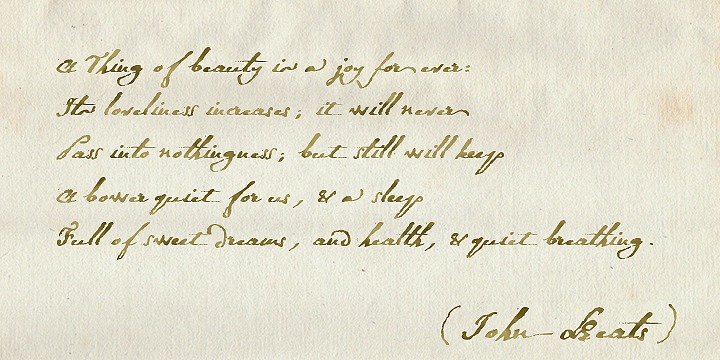 A Thing of beauty is a joy for ever:
Its loveliness increases; it will never
Pass into nothingness; but still will keep
A bower quiet for us, & a sleep
Full of sweet dreams, and health, & quiet breathing.
(John Keats)